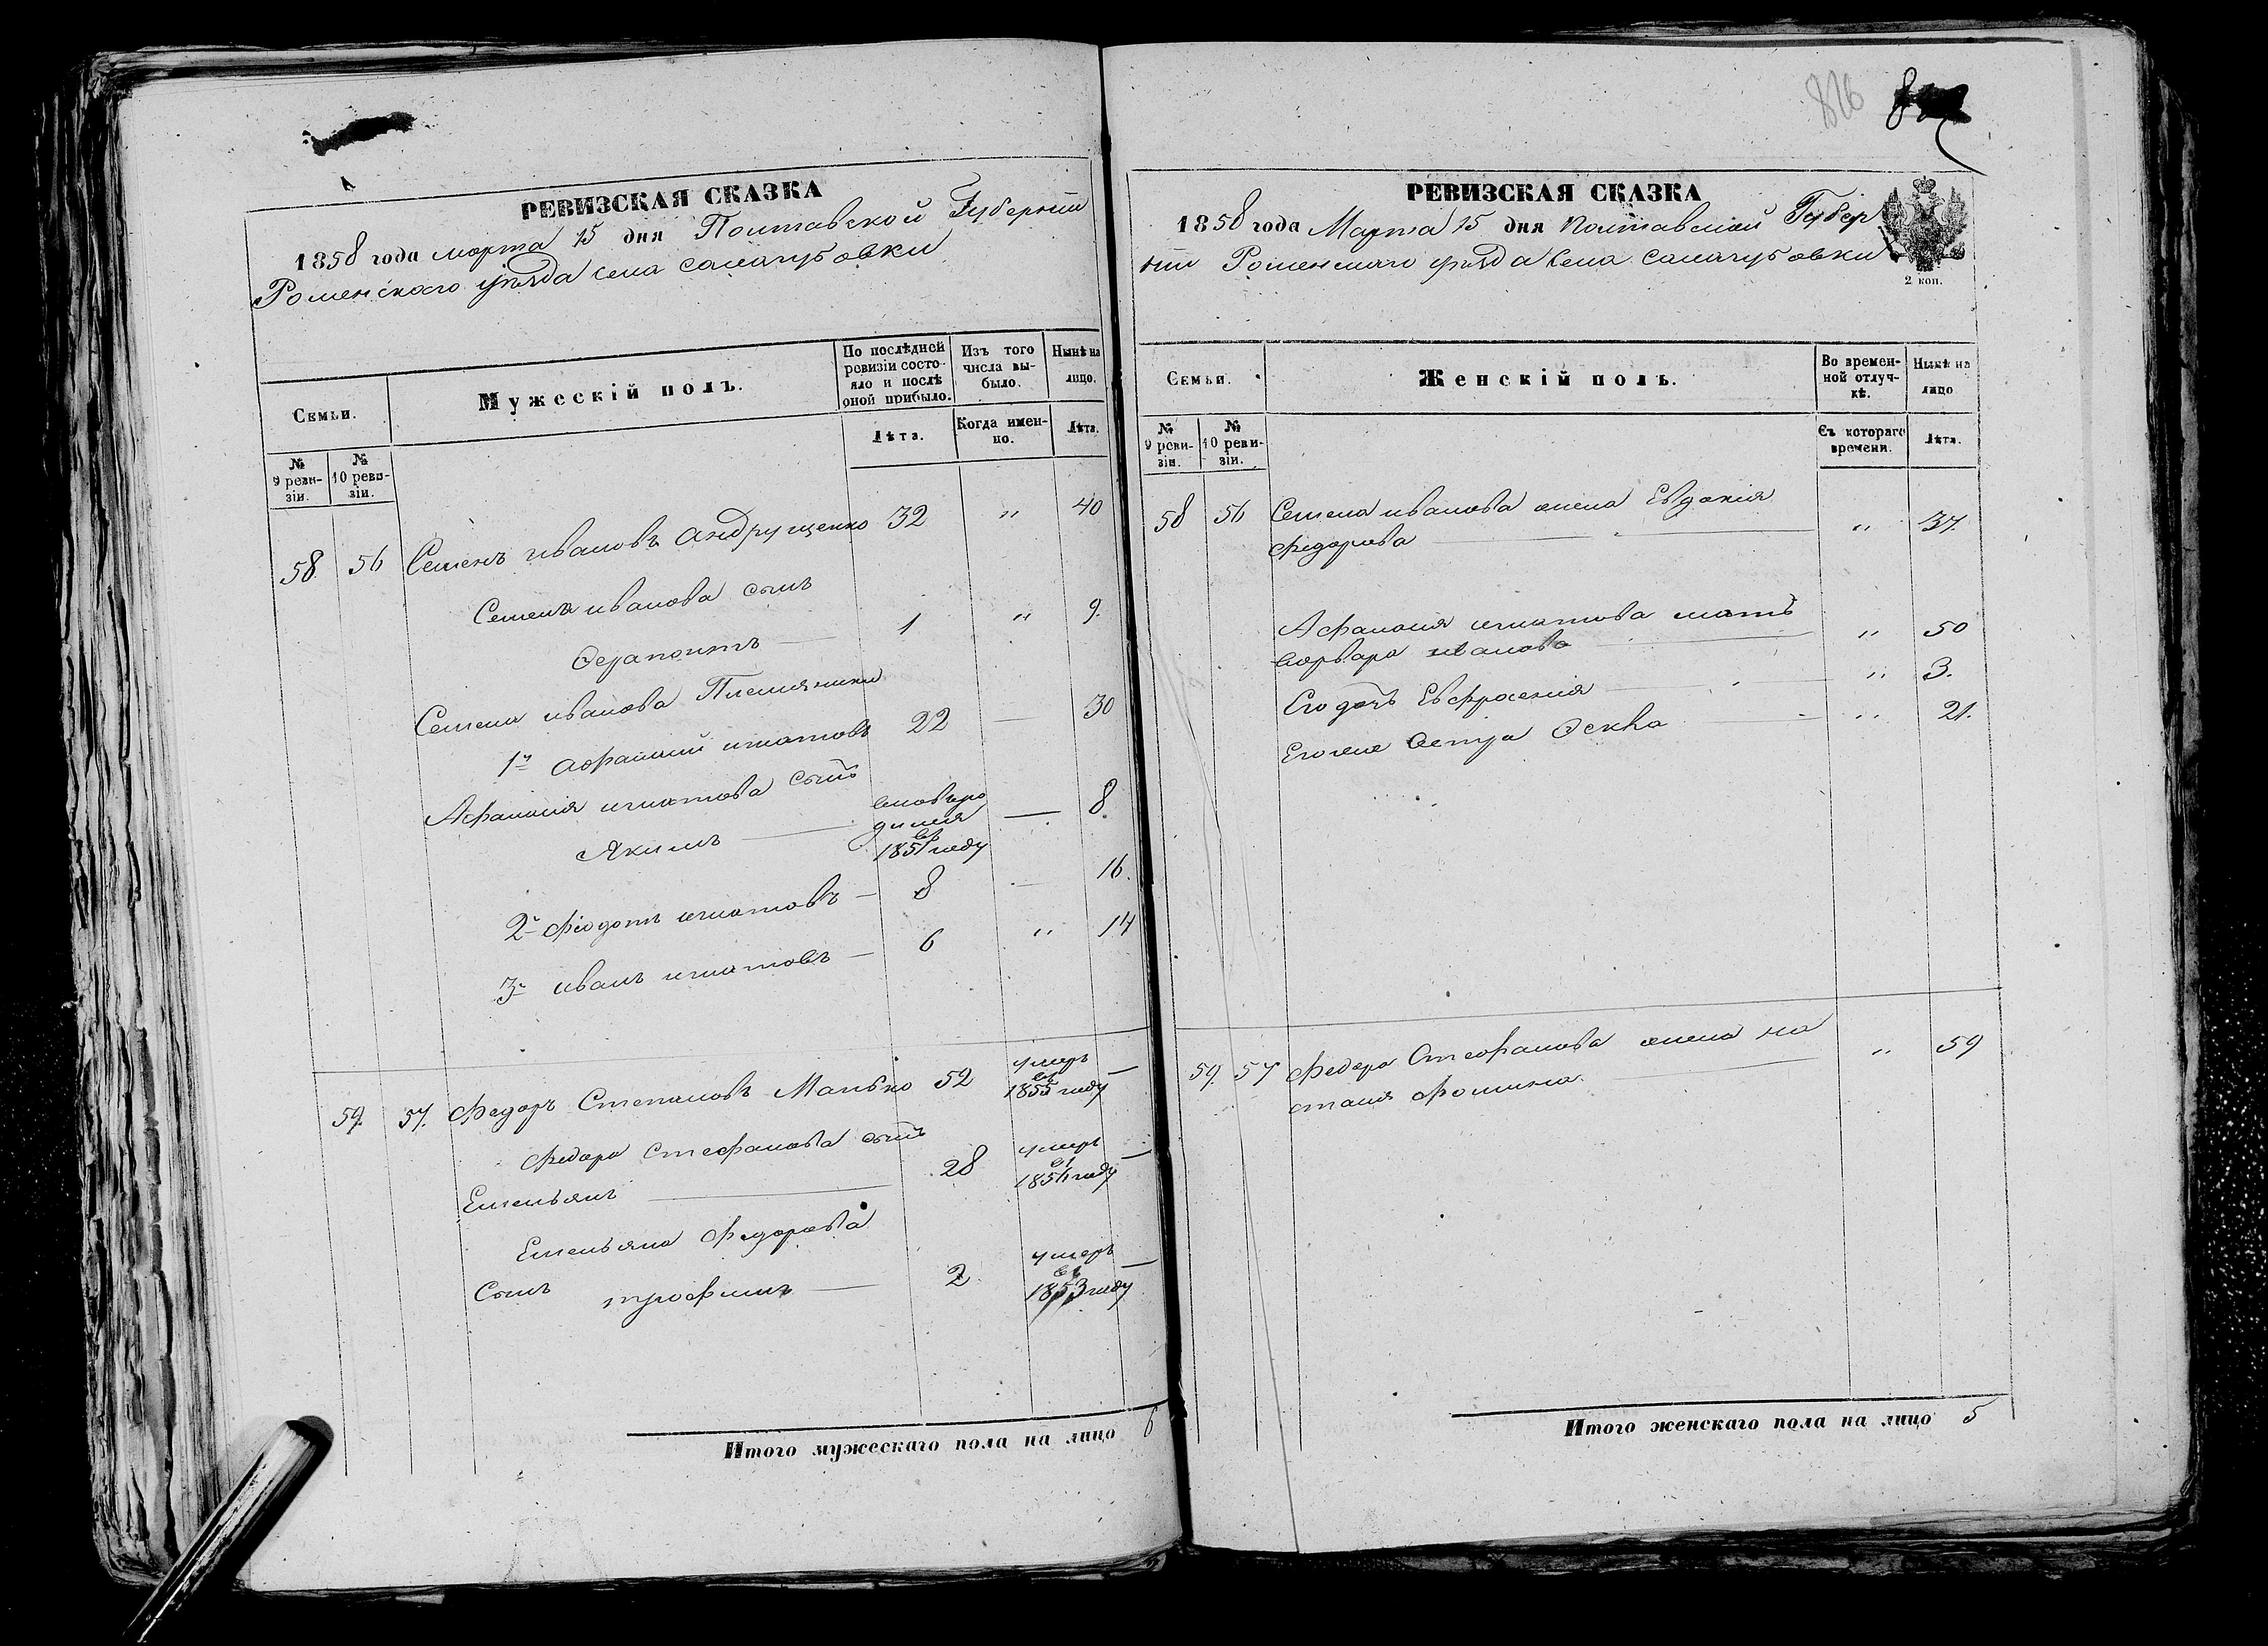 РЕВИЗСКАЯ СКАЗКА
1858 года марта 15 дня Полтавской Губерніи
Роменскаго уѣзда села салогубовки
Семьи.
Мужескій полъ.
По послѣдней ревизіи состояло и послѣ оной прибыло.
Изъ того числа выбыло.
Нынѣ на лицо.
№ 9 ревизіи.
№ 10 ревизіи.
Лѣта.
Когда именно.
Лѣта.
58. 56 Семенъ ивановъ андрущенко 32 " 40
Семена иванова сынъ
1 " 9.
Семена иванова Племяники
1й афанасий игнатовъ 22 — 30
Афанасия игнатова сынъ
Якимъ — вновьро
дился
въ
1851 году — 8.
2й Фіодотъ игнатовъ — 8 — 16.
3й иванъ игнатовъ — 6 " 14
59. 57. Федоръ Степановъ Манько 52 умеръ
въ
1855 году —
Федора Стефанова сынъ
Емельянъ — 28 умеръ
въ
году —
Емельяна Федорова
Сынъ трофимъ — 2 умеръ
въ
1853 году —
Итого мужескаго пола на лицо 6
816
РЕВИЗСКАЯ СКАЗКА
1858 года Марта 15 дня Полтавской Губер
ніи Роменскаго уѣзда села салогубовки
2 коп.
Семьи.
Женскій полъ.
Во временной отлучкѣ.
Нынѣ на лицо
№ 9 ревизіи.
№ 10 ревизіи.
Съ котораго времени.
Лѣта.
58 56 Семена иванова жена Евдокия
Федорова — " 37.
Афанасия игнатова мать
варвара иванова — " 50
Его дочь Евфросения — " 3.
Его же сестра — " 21.
59. 57 Федора Стефанова жена на
стасия Фомина — " 59
Итого женскаго пола на лицо 5